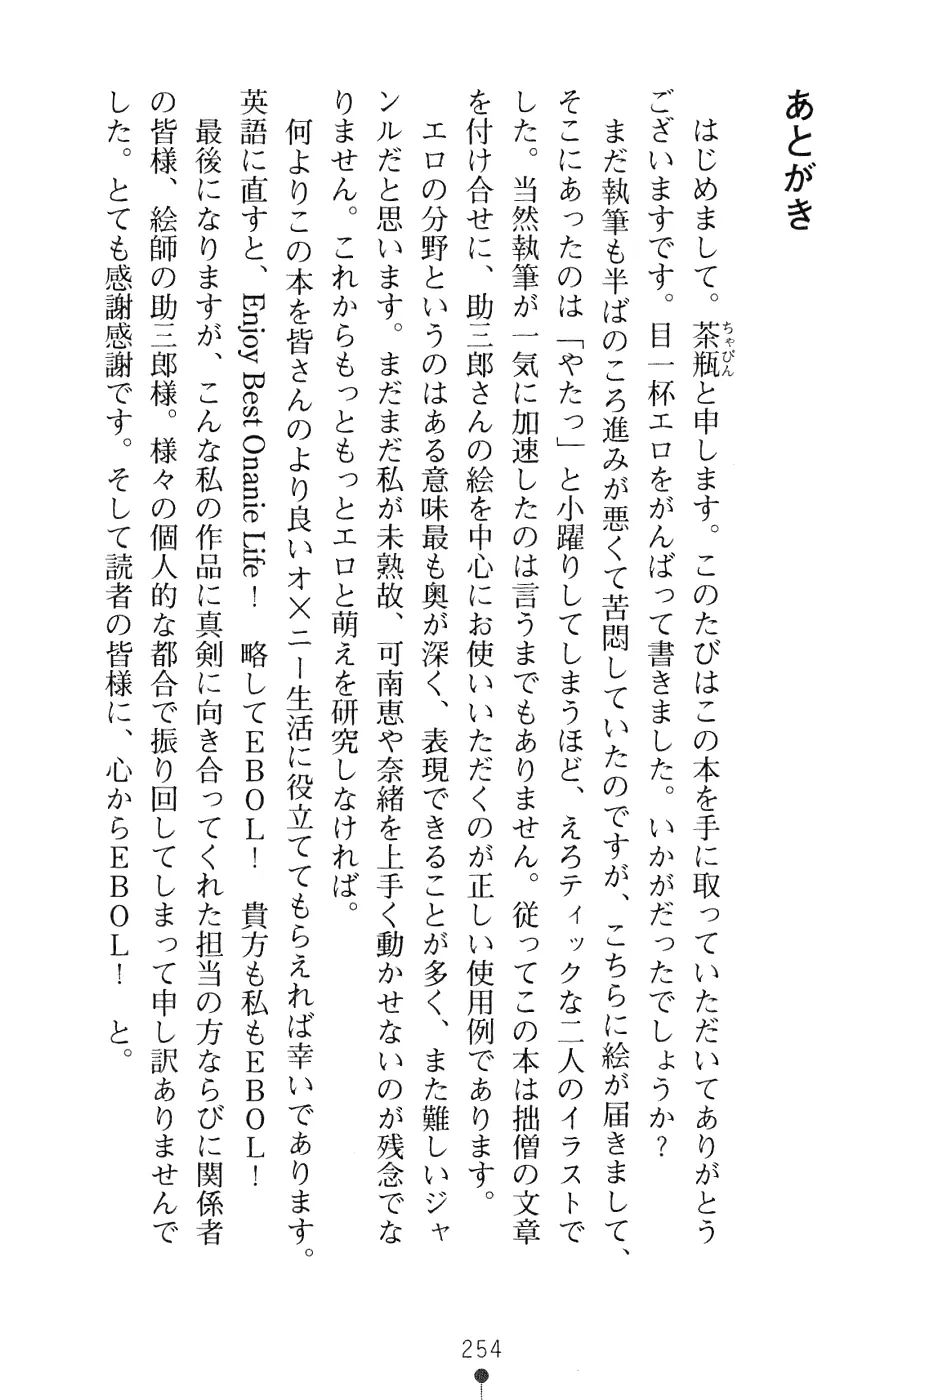 あとがき
はじめまして。茶瓶と申します。このたびはこの本を手に取っていただいてありがとう
ちゃびん
ございますです。目一杯エロをがんばって書きました。いかがだったでしょうか？
まだ執筆も半ばのころ進みが悪くて苦悶していたのですが、こちらに絵が届きまして、
そこにあったのは「やたっ」と小躍りしてしまうほど、えろティックな二人のイラストで
した。当然執筆が一気に加速したのは言うまでもありません。従ってこの本は拙僧の文章
を付け合せに、助三郎さんの絵を中心にお使いいただくのが正しい使用例であります。
エロの分野というのはある意味最も奥が深く、表現できることが多く、また難しいジャ
ンルだと思います。まだまだ私が未熟故、可南恵や奈緒を上手く動かせないのが残念でな
りません。これからもっともっとエロと萌えを研究しなければ。
何よりこの本を皆さんのより良いオ×ニー生活に役立ててもらえれば幸いであります。
英語に直すと、Enjoy Best Onanie Life！　略してＥＢＯＬ！　貴方も私もＥＢＯＬ！
最後になりますが、こんな私の作品に真剣に向き合ってくれた担当の方ならびに関係者
の皆様、絵師の助三郎様。様々の個人的な都合で振り回してしまって申し訳ありませんで
した。とても感謝感謝です。そして読者の皆様に、心からＥＢＯＬ！　と。
254